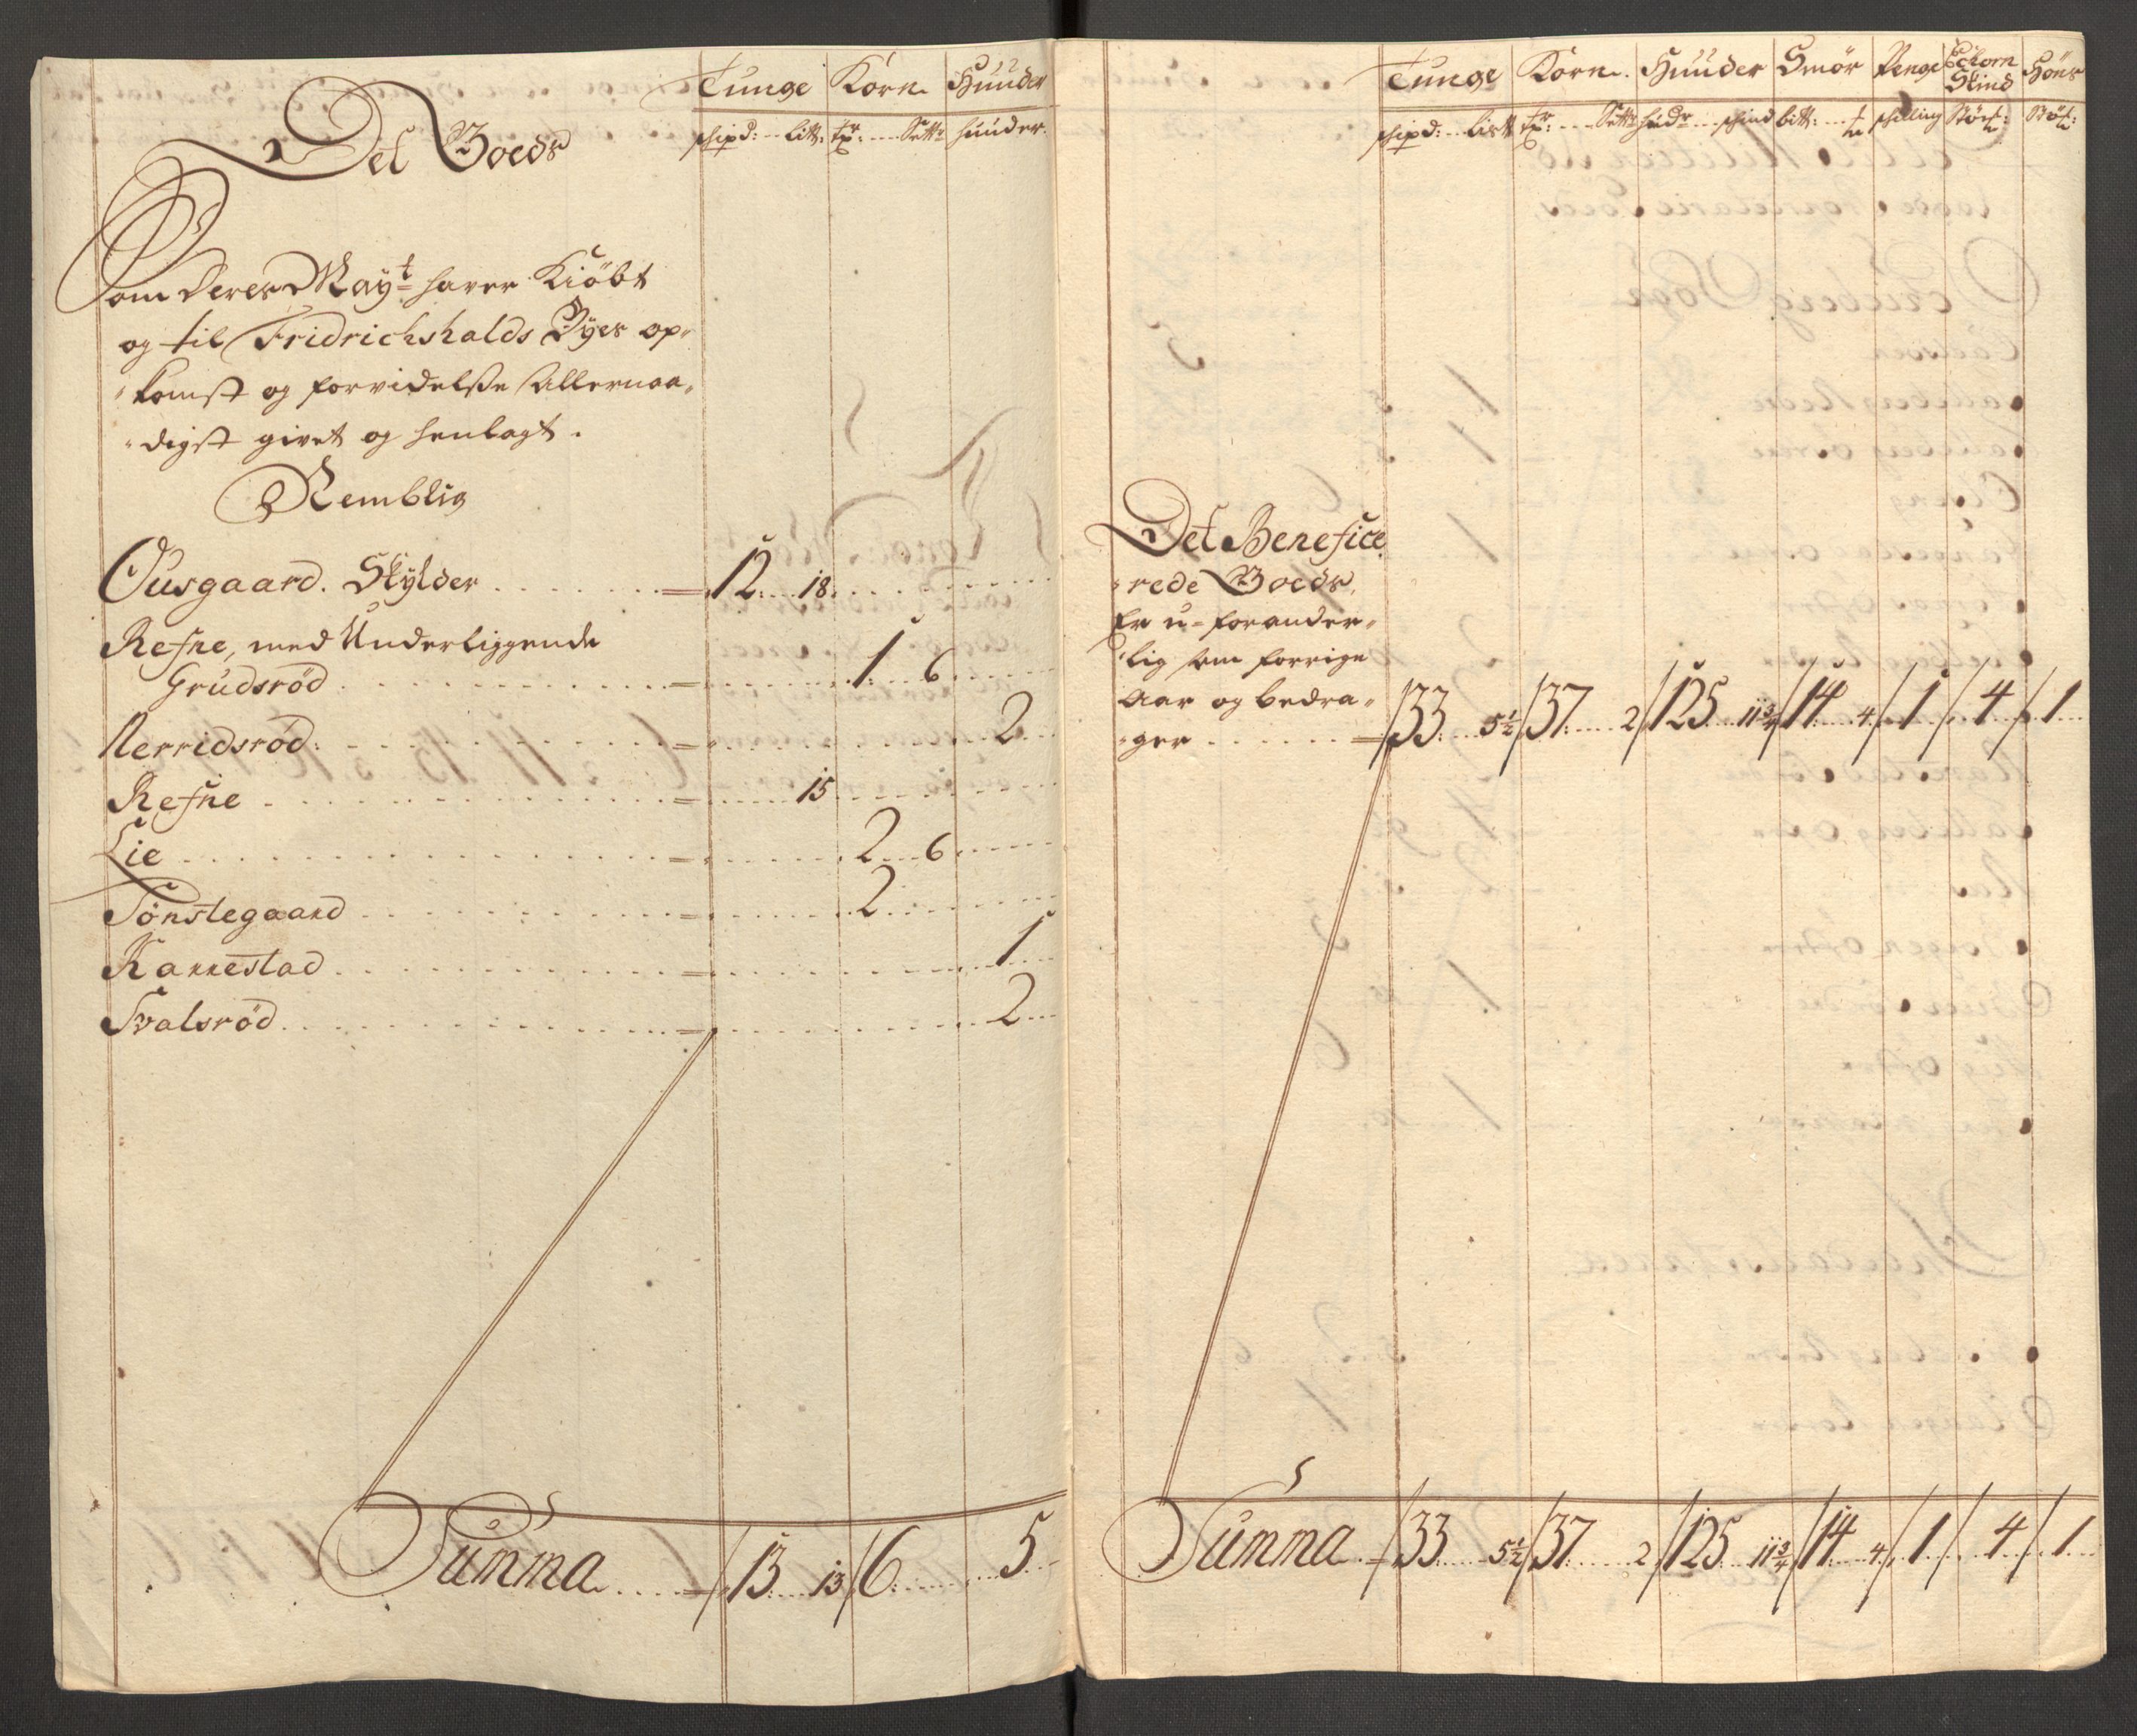 Tunge Korn Huuder
schipd: litt: tr: Sett: huuder
Det Goeds
Som Deres Mayt haver Kiöbt
og til Fridrichshalds Byes op-
komst og forvidelse Allernaa-
digst givet og henlagt.
Nemblig
Ousgaard. Skylder 12 18
Refne, med Underliggende
Grudsröd 1 6
Nerridsröd 2
Refne 15
Lie 2 6
Tönstegaard 2
Kakkestad 1
Svalsröd 2
Summa 13 13 6 5
Tunge Korn Huuder Smör Penge Ichorn Skind Höns
schipd: listt tr: Sett hudr schind litt: skilling Störch: Stöch:
Det Benefice
rede Goeds,
Er u-forander-
lig som forrige
Aar og bedra-
ger 33 5½ 37 2 125 11¾ 14 4 1 4 1
Summa 33 5½ 37 2 125 11¾ 14 4 1 4 1